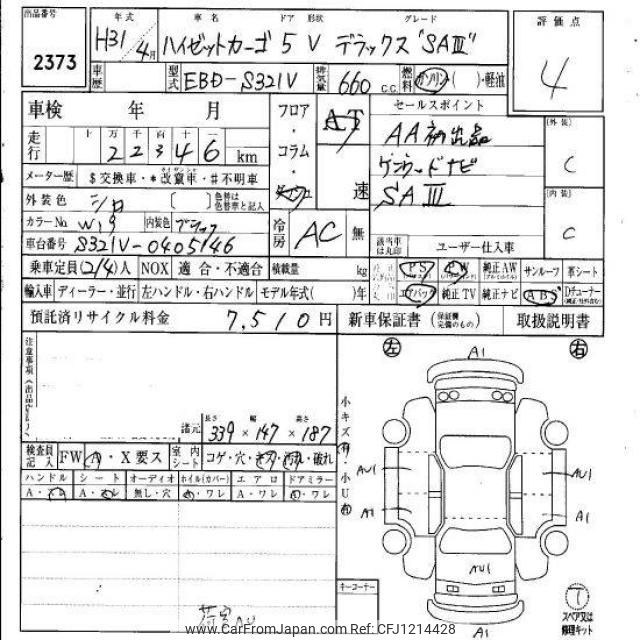 出品番号 年式 車名 ドア 形状 グレード 評価点
2373 H31 4月 ハイゼットカーゴ 5 V デラックス "SAⅢ" 4
車歴 型式 EBD-S321V 排気量 660 c.c. 燃料 ガソリン( )・軽油
車検 年 月 フロア・コラム・ AT 速 セールスポイント [外装]
走行 十 万 千 百 十 一 AA初出品
22346 km ケンウッドナビ C
メーター歴 $交換車・*改竄車・#不明車 SAⅢ [内装]
外装色 シロ [ ] 色替は色替車と記入 C
カラーNo W19 内装色 ブラック 冷房 AC 無
車台番号 S321V-0405146 該当車は丸印 ユーザー仕入車
乗車定員(2/4)人 NOX 適合・不適合 積載量 kg PS PW 純正AW サンルーフ 革シート
輸入車 ディーラー・並行 左ハンドル・右ハンドル モデル年式( )年 エアバック 純正TV 純正ナビ ABS Dチューナー
預託済リサイクル料金 7,510円 新車保証書 (保証欄完備のもの) 取扱説明書
注意事項 左 右
A1
小キズ有・小U有
諸元 長さ 339 × 幅 147 × 高さ 187
検査員記入 FW A・X要ス 室内シート コゲ・穴・キズ・汚れ・破れ
AU1 AU1
ハンドル シート オーディオ ホイル(カバー) エアロ ドアミラー
A・ A・ 無し・穴 ・ワレ A・ワレ ・ワレ
A1 A1
AU1
キーコーナー
T
スペア又は修理キット
荷室
A1
www.CarFromJapan.com Ref: CFJ1214428